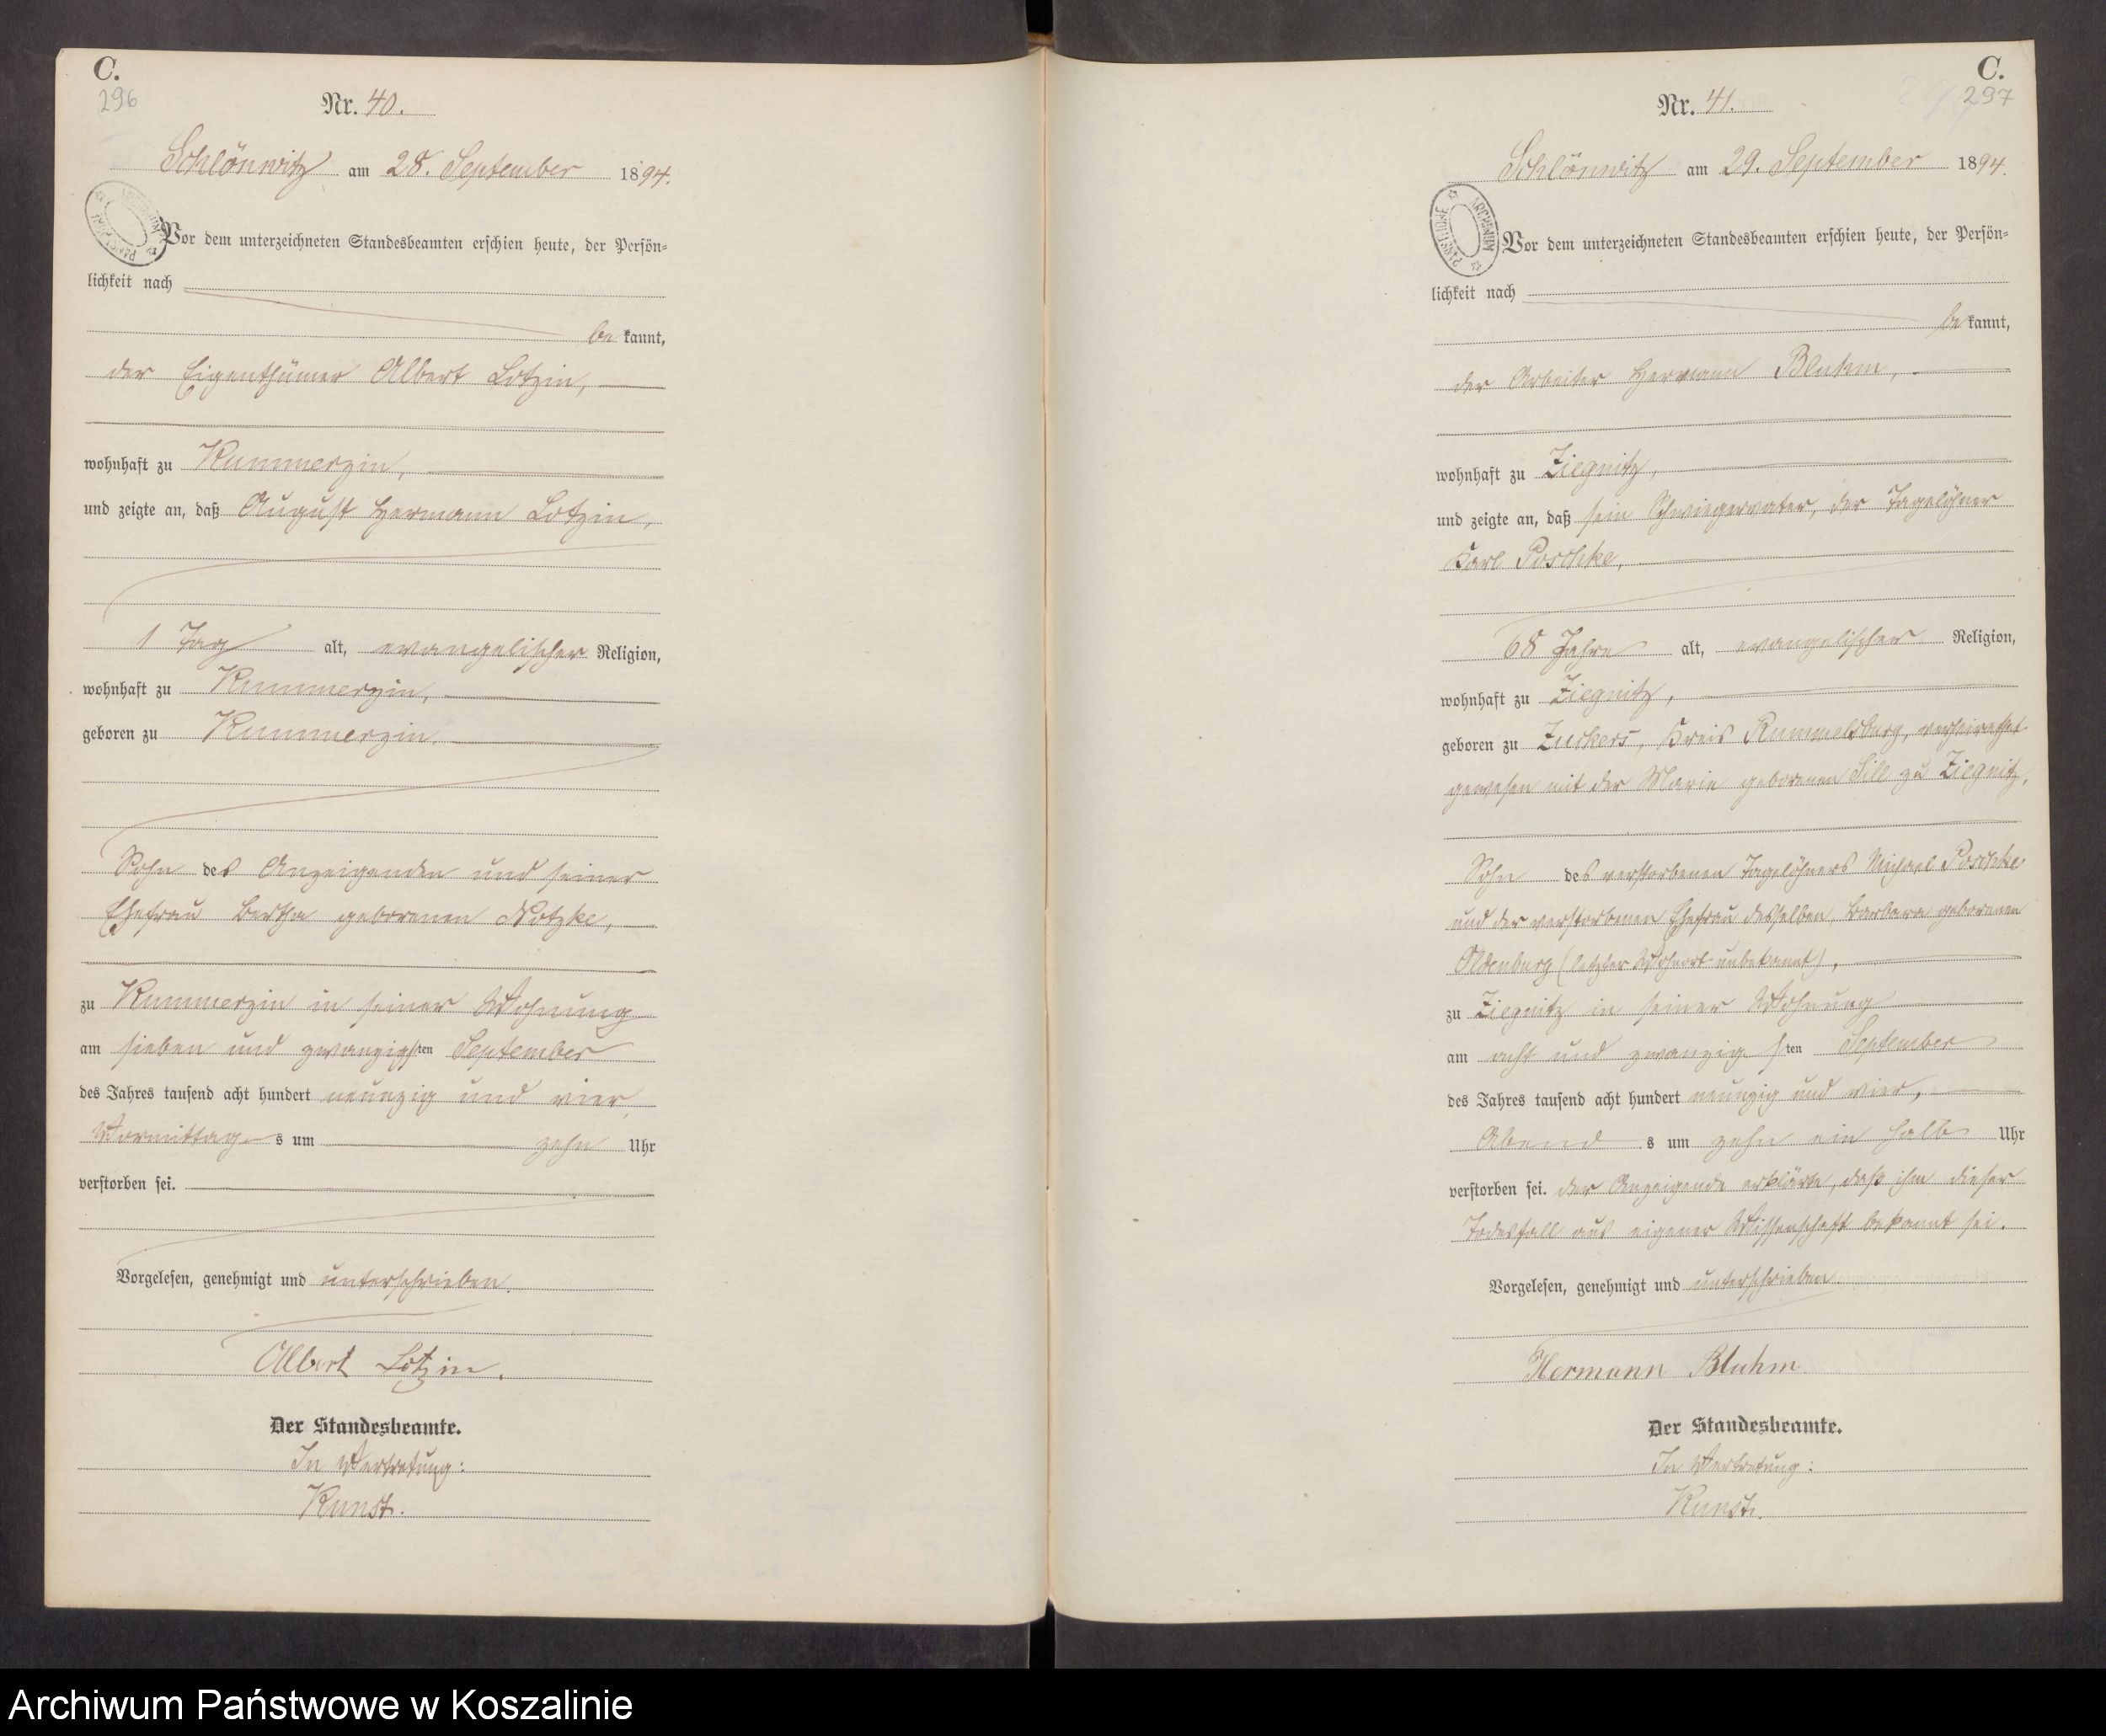 C.
296
Nr. 40.
Schlönwitz am 28. September 1894.
Vor dem unterzeichneten Standesbeamten erschien heute, der Persön-
lichkeit nach
be kannt,
der Eigenthümer Albert Lotzin,
wohnhaft zu Kummerzin,
und zeigte an, daß August Hermann Lotzin,
1 Tag alt, evangelischer Religion,
wohnhaft zu Kummerzin,
geboren zu Kummerzin,
Sohn des Anzeigenden und seiner
Ehefrau Bertha geborenen Notzke,
zu Kummerzin in seiner Wohnung
am sieben und zwanzigsten September
des Jahres tausend acht hundert neunzig und vier,
Vormittags um zehn Uhr
verstorben sei.
Vorgelesen, genehmigt und unterschrieben.
Albert Lotzin.
Der Standesbeamte.
In Vertretung:
Kunst.
C.
297
Nr. 41.
Schlönwitz am 29. September 1894.
ARCHIWUM PAŃSTWOWE
Vor dem unterzeichneten Standesbeamten erschien heute, der Persön-
lichkeit nach
be kannt,
der Arbeiter Hermann Bluhm,
wohnhaft zu Ziegnitz,
und zeigte an, daß sein Schwiegervater, der Tagelöhner
Karl Poschke,
68 Jahre alt, evangelischer Religion,
wohnhaft zu Ziegnitz,
geboren zu Zuckers, Kreis Rummelsburg, verheirathet
gewesen mit der Marie geborenen Sill zu Ziegnitz,
Sohn des verstorbenen Tagelöhners Michael Poschke
und der verstorbenen Ehefrau desselben, Barbara geborenen
Oldenburg (letzter Wohnort unbekannt),
zu Ziegnitz in seiner Wohnung
am acht und zwanzigsten September
des Jahres tausend acht hundert neunzig und vier,
Abends um zehn ein halb Uhr
verstorben sei. Der Anzeigende erklärte, daß ihm dieser
Todesfall aus eigener Wissenschaft bekannt sei.
Vorgelesen, genehmigt und unterschrieben.
Hermann Bluhm.
Der Standesbeamte.
In Vertretung:
Kunst.
Archiwum Państwowe w Koszalinie